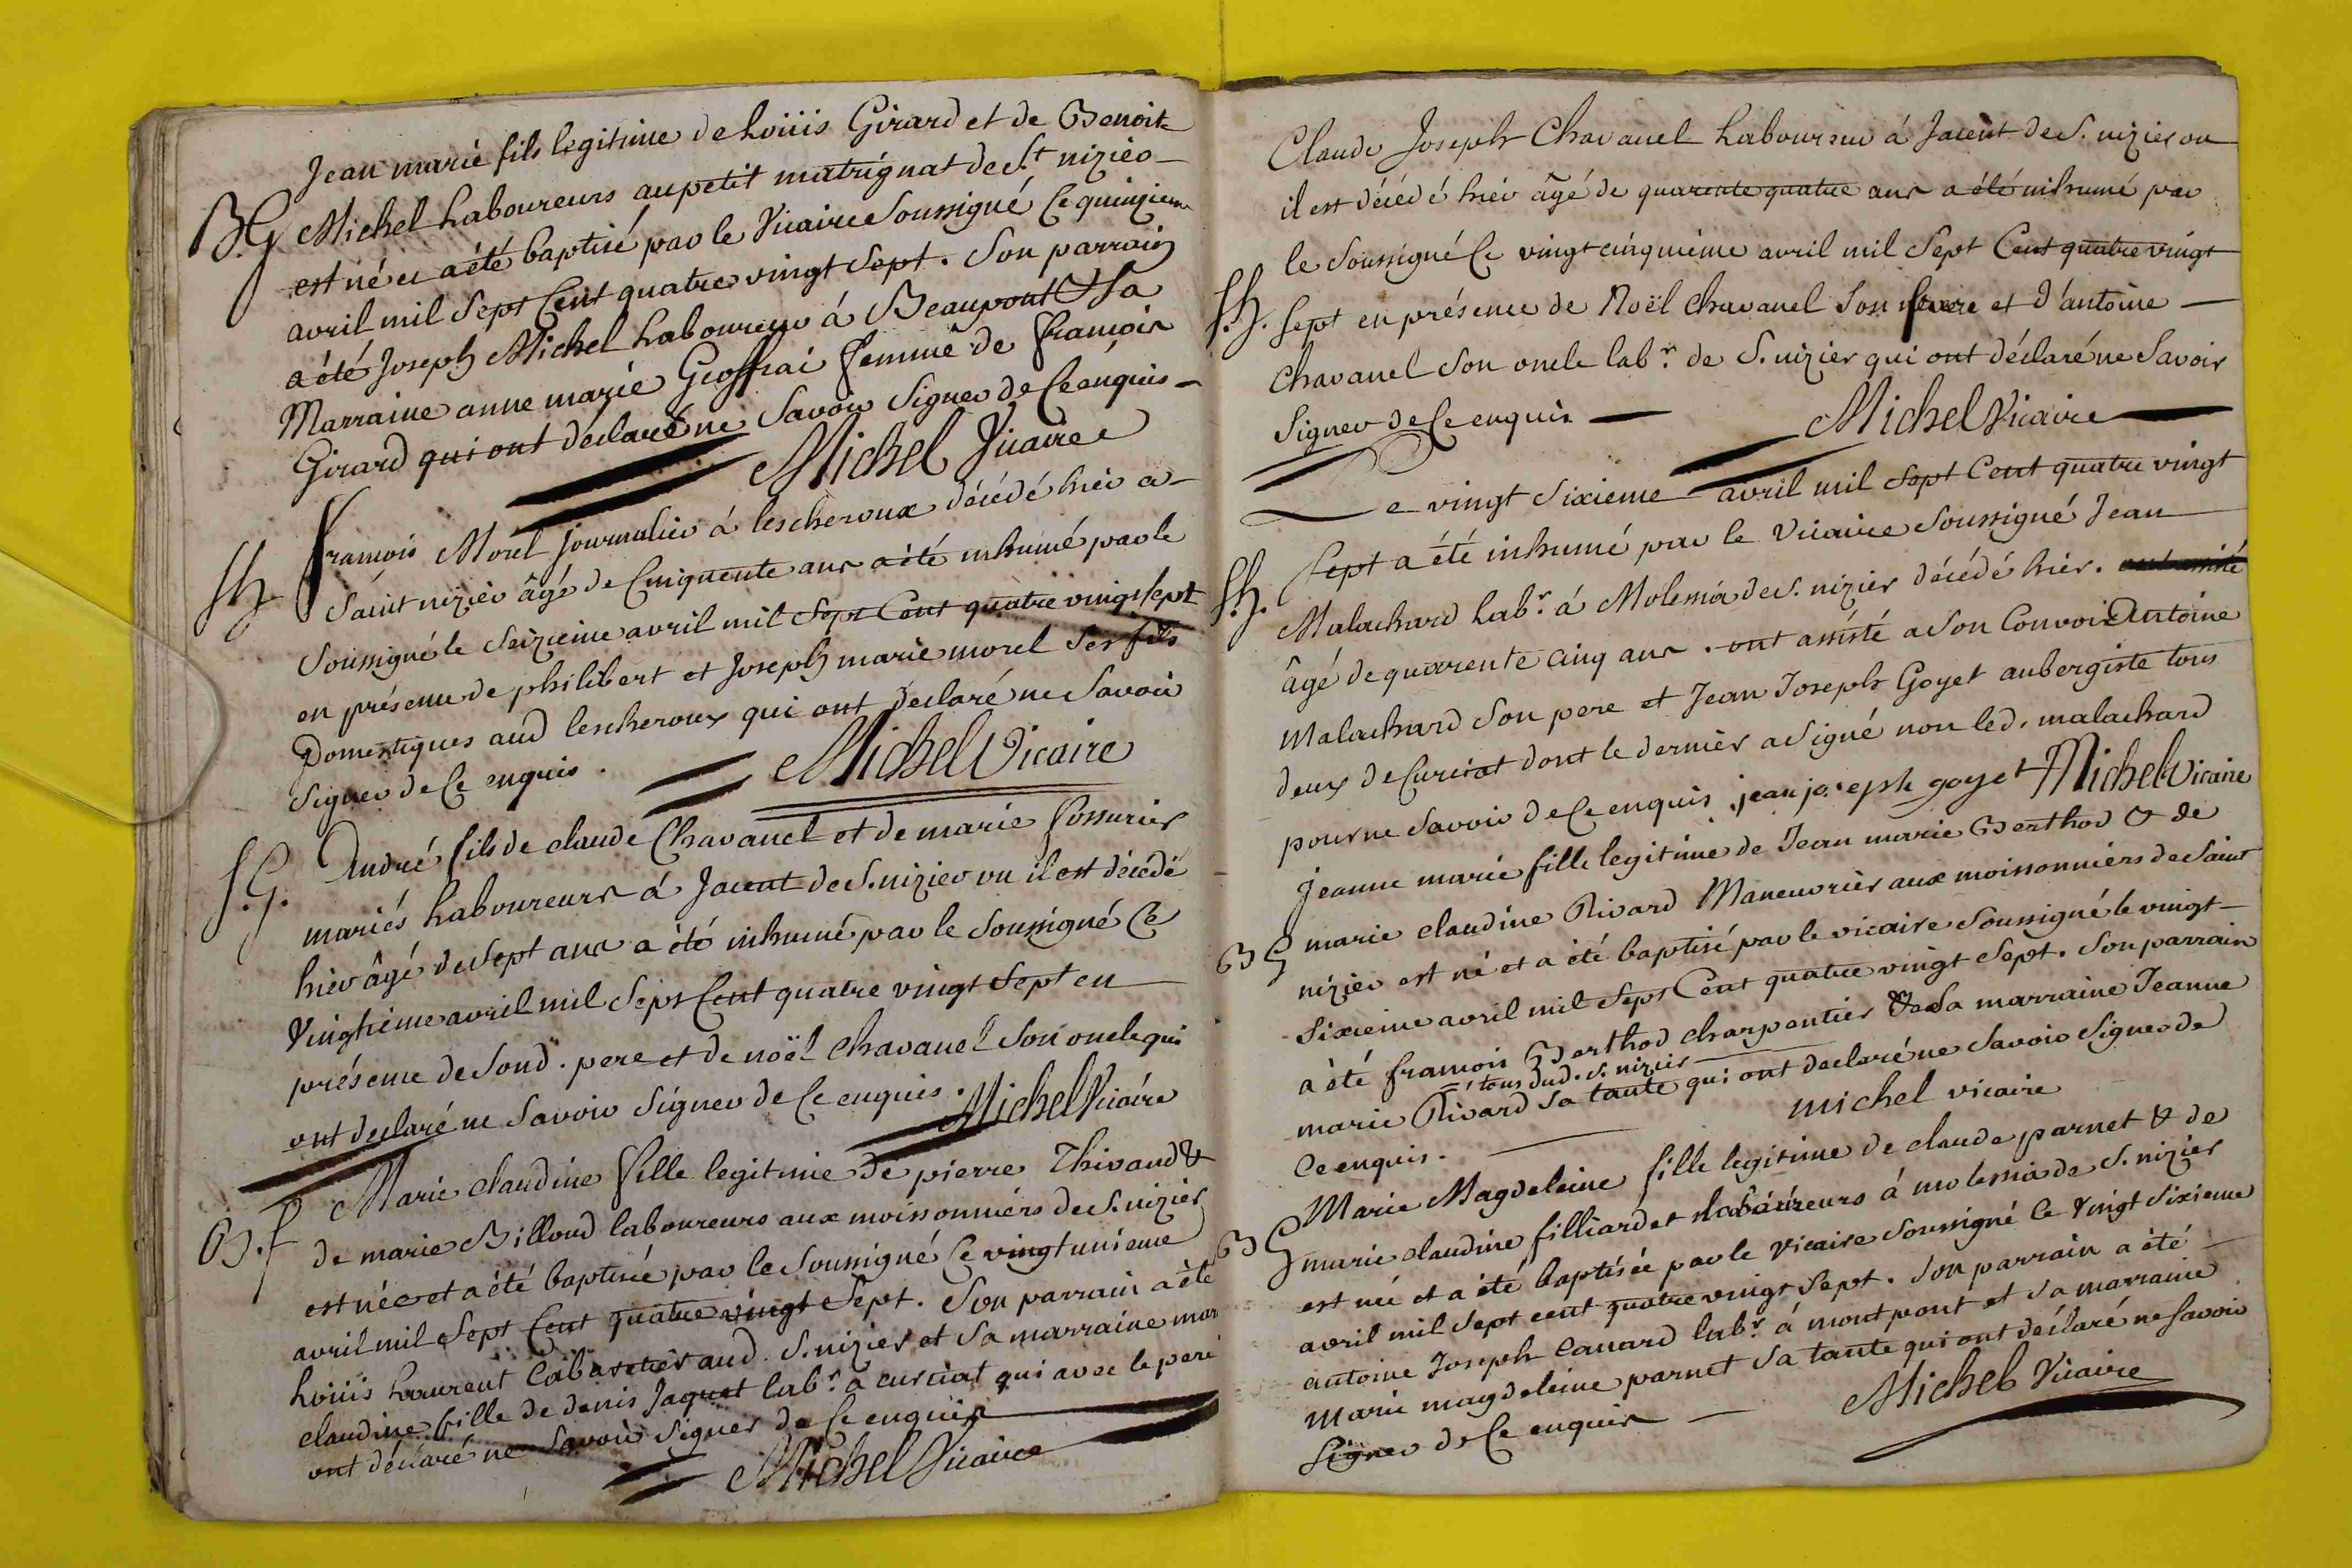 Jean marie fils legitime de Loüis Girard et de Benoite
B.G Michel Laboureurs au petit matrignat de St nizier
est né et a été baptisé par le Vicaire Soussigné Ce quinzieme
avril mil Sept Cent quatre vingt Sept. Son parrain
a été Joseph Michel Laboureur á Beaupont & Sa
Marraine anne marie Geoffrai femme de françois
Girard qui ont déclaré ne Savoir Signer de Ce enquis
Michel Vicaire
françois Morel journalier á lescheroux décédé hier a
Saint nizier âgé de Cinquente ans a été inhumé par le
Soussigné le Seizieme avril mil Sept Cent quatre vingt Sept
en présence de philibert et Joseph marie morel Ses fils
Domestiques aud lescheroux qui ont déclaré ne Savoir
Signer de Ce enquis.
Michel Vicaire
S.G. André fils de claude Chavanel et de marie
mariés Laboureurs á de S. nizier ou il est décédé
hier âgé de Sept ans a été inhumé par le Soussigné Ce
Vingtième avril mil Sept Cent quatre vingt Sept en
présence de Sond. pere et de noël Chavanel Son oncle qui
ont declaré ne Savoir Signer de Ce enquis. Michel Vicaire
Marie claudine fille legitime de pierre Thivaud &
B.f de marie Billoud laboureurs aux moissonniers de S. nizier
est née et a été baptisée par le Soussigné Ce vingt unieme
avril mil Sept Cent quatre vingt Sept. Son parrain a été
Loüis Laurent Cabaretier aud. S. nizier et Sa marraine mar
claudine fille de denis Jaquet labr. a curciat qui avec le pere
ont déclaré ne Savoir Signer de Ce enquis
Michel Vicaire
Claude Joseph Chavanel Laboureur á de S. nizier ou
il est décédé hier âgé de quarente quatre ans a été inhumé par
le Soussigné Ce vingt cinquième avril mil Sept Cent quatre vingt
Sept en présence de Noël Chavanel Son frere et d'antoine
Chavanel Son oncle labr. de S. nizier qui ont déclaré ne Savoir
Signer de Ce enquis
Michel Vicaire
Le vingt Sixieme avril mil Sept Cent quatre vingt
Sept a été inhumé par le Vicaire Soussigné Jean
Malachard Labr. á Molema de S. nizier décédé hier.
âgé de quarrente cinq ans. ont assisté a Son Convoi Antoine
Malachard Son pere et Jean Joseph Goyet aubergiste tous
deux de Curciat dont le dernièr a Signé non led. malachard
pour ne Savoir de Ce enquis. jean joseph goyet Michel Vicaire
Jeanne marie fille legitime de Jean marie Berthod & de
marie claudine Rivard Maneuvrièr aux moissonniers de Saint
B G nizier est né et a été baptisé par le vicaire Soussigné le vingt
Sixieme avril mil Sept Cent quatre vingt Sept. Son parrain
a été françois Berthod charpentier & Sa marraine Jeanne
tous dud. S. nizier
marie Rivard Sa tante qui ont declaré ne Savoir Signer de
Ce enquis.
michel vicaire
Marie Magdeleine fille legitime de claude parnet & de
B G marie claudine filliardet laboureurs á molema de S. nizier
est née et a été baptisée par le vicaire Soussigné Ce vingt Sixieme
avril mil Sept cent quatre vingt Sept. Son parrain a été
antoine Joseph Canard labr. á montpont et Sa marraine
Marie magdeleine parnet Sa tante qui ont déclaré ne Savoir
Signer de Ce enquis
Michel Vicaire